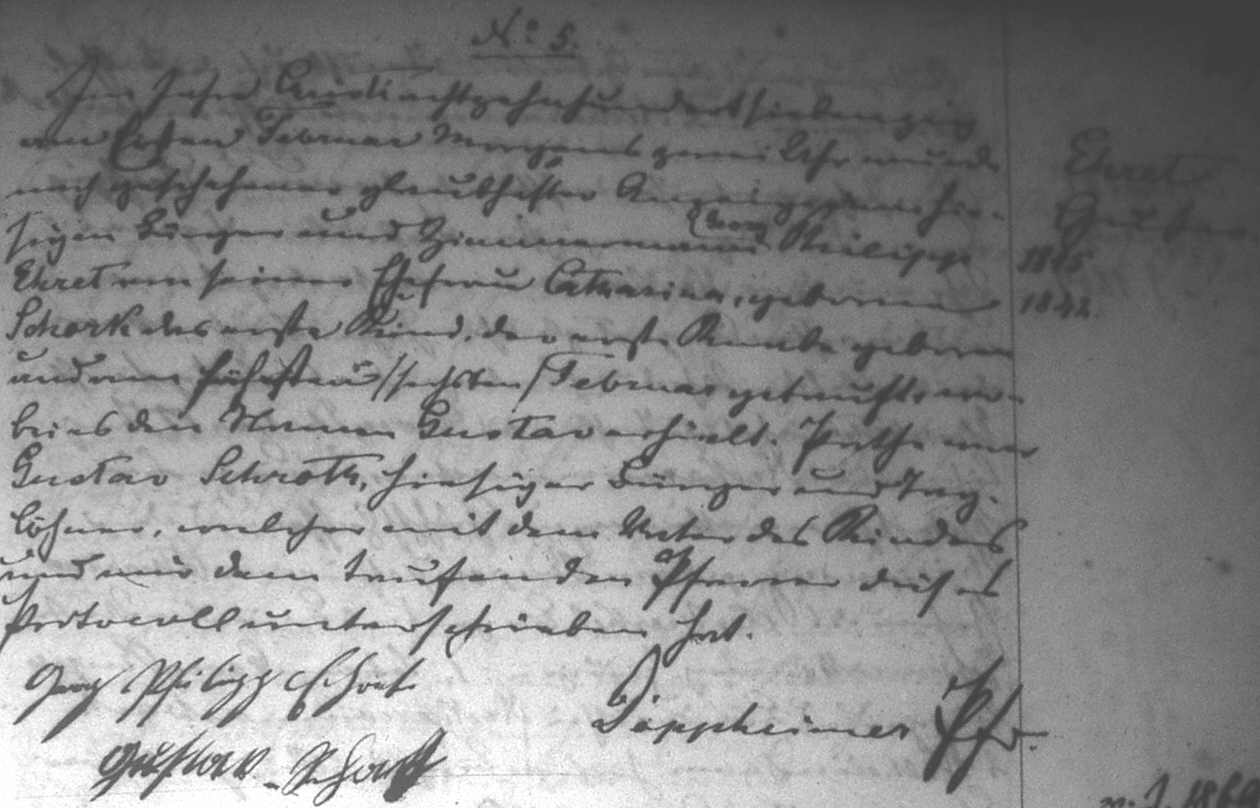 No 5.
Im Jahre Christi achtzehnhundert siebenzig
am Ersten Februar Morgens zwei Uhr wurde
nach geschehener glaubhafter Anzeige dem hie-
sigen Bürger und Zimmermann Georg Philipp
Ehret von seiner Ehefrau Catharina, geborenen
Schork das erste Kind, der erste Knabe geboren
und am sechsten Februar getauft, wo-
bei es den Namen Gustav erhielt. Pathe war
Gustav Schroth, hiesiger Bürger und Tag-
löhner, welcher mit dem Vater des Kindes
und mir dem taufenden Pfarrer dieses
Protocoll unterschrieben hat.
Georg Philipp Ehret
Döppheimer Pfr.
Gustav Schroth
Ehret
Gustav
1845
1842.